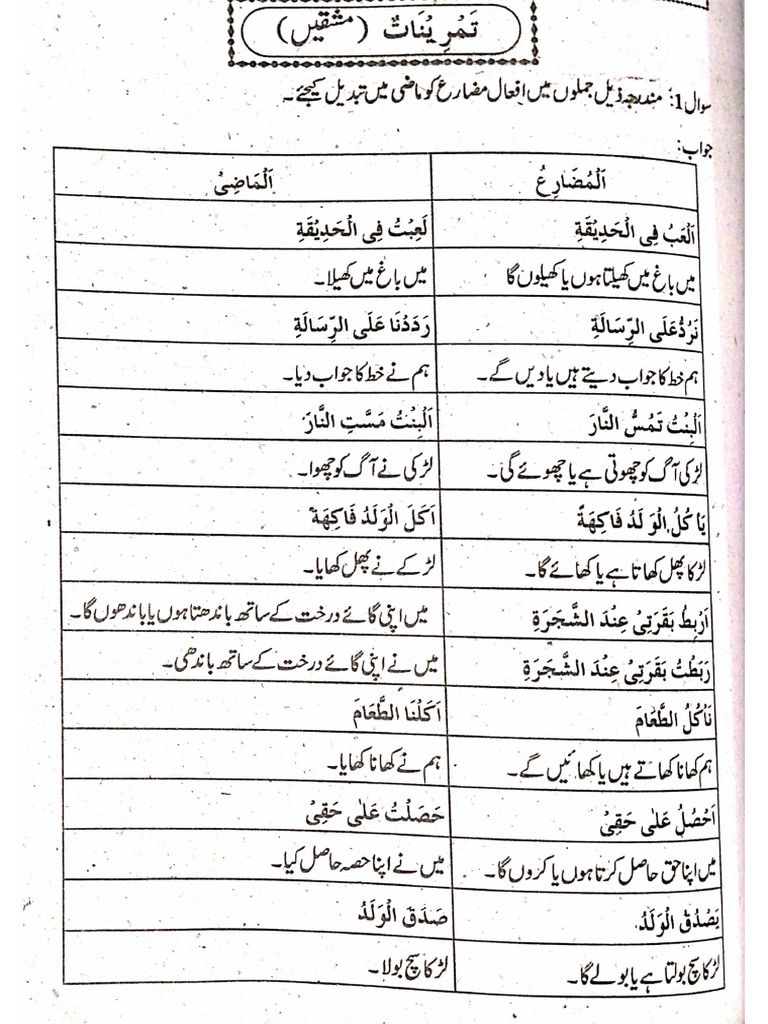 تَمْرِيْنَاتٌ (مشقیں)
سوال 1: مندرجہ ذیل جملوں میں افعال مضارع کو ماضی میں تبدیل کیجئے۔
جواب:
اَلْمُضَارِعُ اَلْمَاضِیْ
اَلْعَبُ فِی الْحَدِيْقَةِ لَعِبْتُ فِی الْحَدِيْقَةِ
میں باغ میں کھیلتا ہوں یا کھیلوں گا میں باغ میں کھیلا۔
نَرُدُّ عَلَی الرِّسَالَةِ رَدَدْنَا عَلَی الرِّسَالَةِ
ہم خط کا جواب دیتے ہیں یا دیں گے۔ ہم نے خط کا جواب دیا۔
اَلْبِنْتُ تَمُسُّ النَّارَ اَلْبِنْتُ مَسَّتِ النَّارَ
لڑکی آگ کو چھوتی ہے یا چھوئے گی۔ لڑکی نے آگ کو چھوا۔
يَاكُلُ الْوَلَدُ فَاكِهَةً اَكَلَ الْوَلَدُ فَاكِهَةً
لڑکا پھل کھاتا ہے یا کھائے گا۔ لڑکے نے پھل کھایا۔
اَرْبِطُ بَقَرَتِیْ عِنْدَ الشَّجَرَةِ میں اپنی گائے درخت کے ساتھ باندھتا ہوں یا باندھوں گا۔
رَبَطْتُ بَقَرَتِیْ عِنْدَ الشَّجَرَةِ میں نے اپنی گائے درخت کے ساتھ باندھی۔
نَاْكُلُ الطَّعَامَ اَكَلْنَا الطَّعَامَ
ہم کھانا کھاتے ہیں یا کھائیں گے۔ ہم نے کھانا کھایا۔
اَحْصُلُ عَلٰی حَقِیْ حَصَلْتُ عَلٰی حَقِیْ
میں اپنا حق حاصل کرتا ہوں یا کروں گا۔ میں نے اپنا حصہ حاصل کیا۔
يَصْدُقُ الْوَلَدُ صَدَقَ الْوَلَدُ
لڑکا سچ بولتا ہے یا بولے گا۔ لڑکا سچ بولا۔